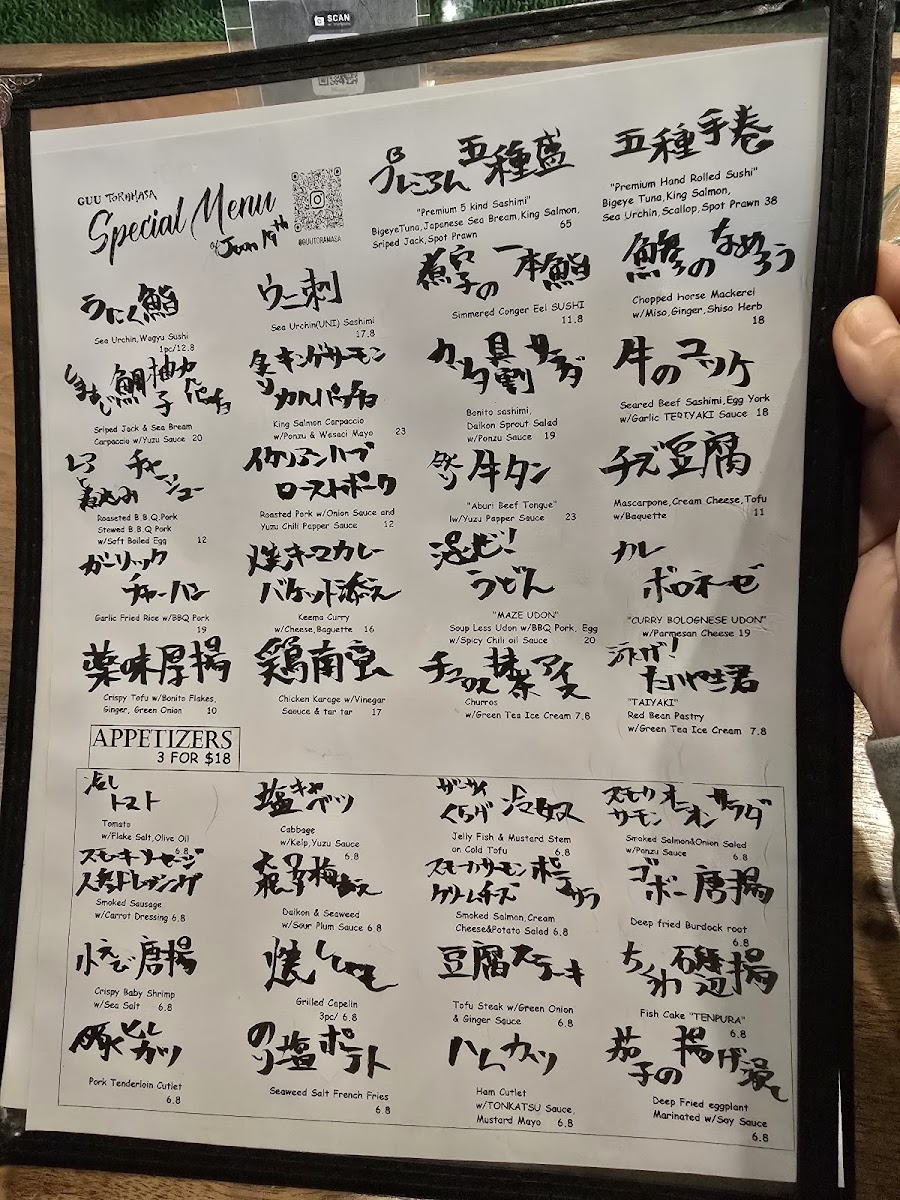 SCAN
GUU TORAMASA
Special Menu
of Jun 19th
@GUUTORAMASA
五種盛
"Premium 5 kind Sashimi"
BigeyeTuna,Japanese Sea Bream,King Salmon,
Sriped Jack,Spot Prawn 65
五種手巻
"Premium Hand Rolled Sushi"
Bigeye Tuna,King Salmon,
Sea Urchin,Scallop,Spot Prawn 38
うにく鮨
Sea Urchin,Wagyu Sushi
1pc/12.8
ウニ刺
Sea Urchin(UNI) Sashimi
17.8
煮穴子の一本鮨
Simmered Conger Eel SUSHI
11.8
鯵のなめろう
Chopped horse Mackerel
w/Miso,Ginger,Shiso Herb
18
しまあじ鯛柚子カルパッチョ
Sriped Jack & Sea Bream
Carpaccio w/Yuzu Sauce 20
キングサーモン
カルパッチョ
King Salmon Carpaccio
w/Ponzu & Wasaci Mayo 23
サラダ
Bonito sashimi,
Daikon Sprout Salad
w/Ponzu Sauce 19
牛のユッケ
Seared Beef Sashimi,Egg York
w/Garlic TERIYAKI Sauce 18
チャーシュー
Roaseted B.B.Q.Pork
Stewed B.B.Q Pork
w/Soft Boiled Egg 12
イタリアンハーブ
ローストポーク
Roasted Pork w/Onion Sauce and
Yuzu Chili Papper Sauce 12
炙り牛タン
"Aburi Beef Tongue"
lw/Yuzu Papper Sauce 23
チーズ豆腐
Mascarpone,Cream Cheese,Tofu
w/Baquette 11
ガーリック
チャーハン
Garlic Fried Rice w/BBQ Pork
19
焼キーマカレー
バケット添え
Keema Curry
w/Cheese,Baguette 16
混ぜ!
うどん
"MAZE UDON"
Soup Less Udon w/BBQ Pork, Egg
w/Spicy Chili oil Sauce 20
カレー
ボロネーゼ
"CURRY BOLOGNESE UDON"
w/Parmesan Cheese 19
薬味厚揚
Crispy Tofu w/Bonito Flakes,
Ginger, Green Onion 10
鶏南蛮
Chicken Karage w/Vinegar
Saouce & tar tar 17
チュロス抹茶アイス
Churros
w/Green Tea Ice Cream 7.8
泳げ!
たいやき君
"TAIYAKI"
Red Bean Pastry
w/Green Tea Ice Cream 7.8
APPETIZERS
3 FOR $18
冷し
トマト
Tomato
w/Flake Salt,Olive Oil
6.8
塩キャベツ
Cabbage
w/Kelp,Yuzu Sauce
6.8
ザーサイ
くらげ冷奴
Jelly Fish & Mustard Stem
on Cold Tofu 6.8
スモークサーモンオニオンサラダ
Smoked Salmon&Onion Salad
w/Ponzu Sauce 6.8
スモーキーソーセージ
人参ドレッシング
Smoked Sausage
w/Carrot Dressing 6.8
大根昆布梅和え
Daikon & Seaweed
w/Sour Plum Sauce 6.8
スモークサーモン
クリームチーズ
ポテサラ
Smoked Salmon,Cream
Cheese&Potato Salad 6.8
ゴボー唐揚
Deep fried Burdock root
6.8
小えび唐揚
Crispy Baby Shrimp
w/Sea Salt 6.8
焼ししゃも
Grilled Capelin
3pc/ 6.8
豆腐ステーキ
Tofu Steak w/Green Onion
& Ginger Sauce 6.8
ちくわ磯辺揚
Fish Cake "TENPURA"
6.8
豚ヒレカツ
Pork Tenderloin Cutlet
6.8
のり塩ポテト
Seaweed Salt French Fries
6.8
ハムカツ
Ham Cutlet
w/TONKATSU Sauce,
Mustard Mayo 6.8
茄子の揚げ浸し
Deep Fried eggplant
Marinated w/Soy Sauce
6.8